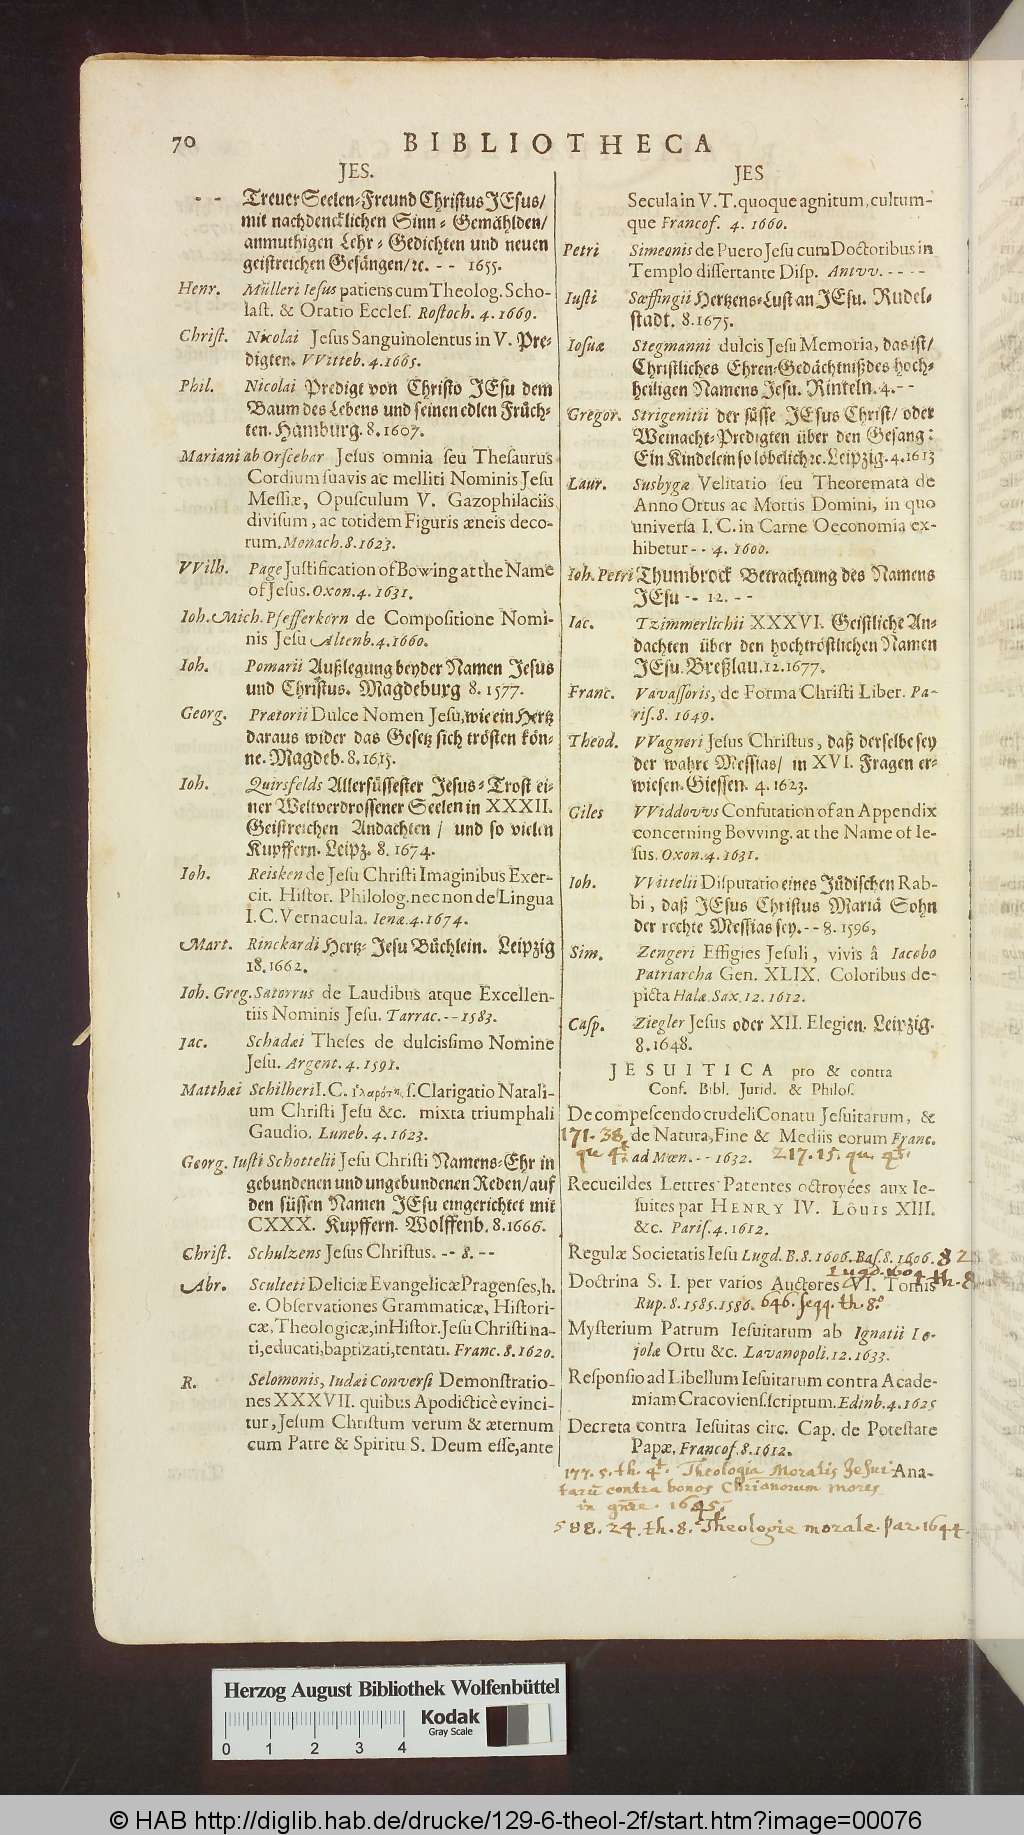 70
BIBLIOTHECA
JES.
- - Treuer Seelen-Freund Christus JEsus/
mit nachdencklichen Sinn-Gemählden/
anmuthigen Lehr-Gedichten und neuen
geistreichen Gesängen/ꝛc. -- 1655.
Henr. Mülleri Iesus patiens cum Theolog. Scho-
last. & Oratio Ecclef. Rostoch. 4. 1669.
Christ. Nicolai Jesus Sanguinolentus in V. Pre-
digten. VVitteb. 4. 1665.
Phil. Nicolai Predigt von Christo JEsu dem
Baum des Lebens und seinen edlen Früch-
ten. Hamburg. 8. 1607.
Mariani ab Orscebar Jesus omnia seu Thesaurus
Cordium suavis ac melliti Nominis Jesu
Messiæ, Opusculum V. Gazophilaciis
divisum, ac totidem Figuris æneis deco-
rum. Monach. 8. 1623.
VVilh. Page Justification of Bowing at the Name
of Jesus. Oxon. 4. 1631.
Ioh. Mich. Pfefferkorn de Compositione Nomi-
nis Jesu Altenb. 4. 1660.
Ioh. Pomarii Außlegung beyder Namen Jesus
und Christus. Magdeburg 8. 1577.
Georg. Prætorii Dulce Nomen Jesu, wie ein Hertz
daraus wider das Gesetz sich trösten kön-
ne. Magdeb. 8. 1615.
Ioh. Quirsfelds Allersüssester Jesus-Trost ei-
ner Weltverdrossener Seelen in XXXII.
Geistreichen Andachten / und so vielen
Kupffern. Leipz. 8. 1674.
Ioh. Reisken de Jesu Christi Imaginibus Exer-
cit. Histor. Philolog. nec non de Lingua
I. C. Vernacula. Ienæ. 4. 1674.
Mart. Rinckardi Hertz-Jesu Büchlein. Leipzig
18. 1662.
Ioh. Greg. Satorrus de Laudibus atque Excellen-
tiis Nominis Jesu. Tarrac. -- 1583.
Jac. Schadæi Theses de dulcissimo Nomine
Jesu. Argent. 4. 1591.
Matthæi Schilheri I. C. ſ. Clarigatio Natali-
um Christi Jesu &c. mixta triumphali
Gaudio. Luneb. 4. 1623.
Georg. Iusti Schottelii Jesu Christi Namens-Ehr in
gebundenen und ungebundenen Reden/auf
den süssen Namen JEsu eingerichtet mit
CXXX. Kupffern. Wolffenb. 8. 1666.
Christ. Schulzens Jesus Christus. -- 8. --
Abr. Sculteti Deliciæ Evangelicæ Pragenses, h.
e. Observationes Grammaticæ, Histori-
cæ, Theologicæ, in Histor. Jesu Christi na-
ti, educati, baptizati, tentati. Franc. 8. 1620.
R. Selomonis, Iudæi Conversi Demonstratio-
nes XXXVII. quibus Apodicticè evinci-
tur, Jesum Christum verum & æternum
cum Patre & Spiritu S. Deum esse, ante
JES
Secula in V. T. quoque agnitum, cultum-
que Francof. 4. 1660.
Petri Simeonis de Puero Jesu cum Doctoribus in
Templo dissertante Disp. Antvv. ----
Iusti Sœffingii Hertzens-Lust an JEsu. Rudel-
stadt. 8. 1675.
Iosuæ Stegmanni dulcis Jesu Memoria, das ist/
Christliches Ehren-Gedächtniß des hoch-
heiligen Namens Jesu. Rinteln. 4. --
Gregor. Strigenitii der süsse JEsus Christ/ oder
Weinacht-Predigten über den Gesang:
Ein Kindelein so löbelich ꝛc. Leipzig. 4. 1613
Laur. Susbyga Velitatio seu Theoremata de
Anno Ortus ac Mortis Domini, in quo
universa I. C. in Carne Oeconomia ex-
hibetur -- 4. 1600.
Ioh. Petri Thumbrock Betrachtung des Namens
JEsu -- 12. --
Iac. Tzimmerlichii XXXVI. Geistliche An-
dachten über den hochtröstlichen Namen
JEsu. Breßlau. 12. 1677.
Franc. Vavassoris, de Forma Christi Liber. Pa-
ris. 8. 1649.
Theod. VVagneri Jesus Christus, daß derselbe sey
der wahre Messias/ in XVI. Fragen er-
wiesen. Giessen. 4. 1623.
Giles VViddovvs Confutation of an Appendix
concerning Bovving. at the Name of Ie-
sus. Oxon. 4. 1631.
Ioh. VVittelii Disputatio eines Jüdischen Rab-
bi, daß JEsus Christus Mariâ Sohn
der rechte Messias sey. -- 8. 1596,
Sim. Zengeri Effigies Jesuli, vivis â Iacobo
Patriarcha Gen. XLIX. Coloribus de-
picta Halæ. Sax. 12. 1612.
Casp. Ziegler Jesus oder XII. Elegien. Leipzig.
8. 1648.
JESUITICA pro & contra
Conf. Bibl. Jurid. & Philos.
De compescendo crudeli Conatu Jesuitarum, &
171. 38. de Natura, Fine & Mediis eorum Franc.
qu 4.º ad Mœn. -- 1632. 217. 15. qu. 4.º
Recueil des Lettres Patentes octroyées aux Ie-
suites par HENRY IV. Louis XIII.
&c. Paris. 4. 1612.
Regulæ Societatis Iesu Lugd. B. 8. 1606. Bas. 8. 1606. 82
Lugd. 1604 th. 8
Doctrina S. I. per varios Auctores VI. Tomis
Rup. 8. 1585. 1586. 646. seqq. th. 8.º
Mysterium Patrum Iesuitarum ab Ignatii Lo-
jolæ Ortu &c. Lavanopoli. 12. 1633.
Responsio ad Libellum Iesuitarum contra Acade-
miam Cracoviens. scriptum. Edinb. 4. 1625
Decreta contra Iesuitas circ. Cap. de Potestate
Papæ. Francof. 8. 1612.
Ana-
177. 5. th. 4.º Theologia Moralis Jesui
tarū contra bonos Chrianorum mores
in gn̄re. 1645.
588. 24. th. 8. Theologie morale. par. 1644.
Herzog August Bibliothek Wolfenbüttel
Kodak
Gray Scale
0 1 2 3 4
© HAB http://diglib.hab.de/drucke/129-6-theol-2f/start.htm?image=00076